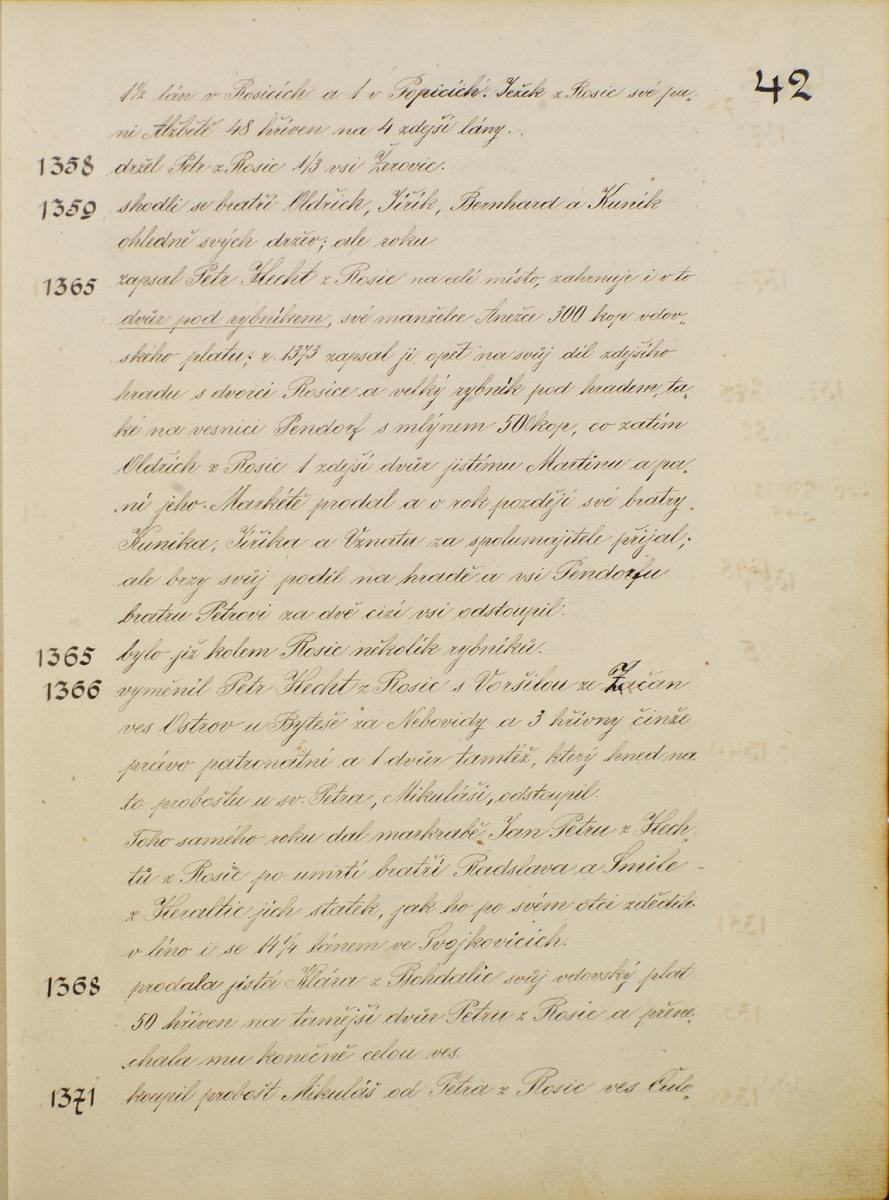 42
1½ lán v Rosicích a 1 v Popicích. Ježek z Rosic své pa-
ní Alžbětě 48 hřiven na 4 zdejší lány.
1358 držel Petr z Rosic 1/3 vsi Žerovic.
1359 shodli se bratří Oldřich, Jiřík, Bernhard a Kuník
ohledně svých držev; ale roku
1365 zapsal Petr Hecht z Rosic na celé místo, zahrnuje i v to
dvůr pod rybníkem, své manželce Anežce 300 kop vdov-
ského platu; r. 1373 zapsal jí opět na svůj díl zdejšího
hradu s dvorci Rosice a velký rybník pod hradem, ta-
ké na vesnici Pendorf s mlýnem 500 kop, co zatím
Oldřich z Rosic 1 zdejší dvůr jistému Martinu a pa-
ní jeho Markétě prodal a o rok později své bratry
Kunika, Jiřika a Vznatu za spolumajitele přijal;
ale brzy svůj podíl na hradě a vsi Pendorfu
bratru Petrovi za dvě cizí vsi odstoupil.
1365 bylo již kolem Rosic několik rybníků.
1366 vyměnil Petr Hecht z Rosic s Voršilou ze Začan
ves Ostrov u Byteše za Nebovidy a 3 hřivny činže
právo patronátní a 1 dvůr tamtéž, který hned na
to proboštu u sv. Petra, Mikuláši, odstoupil.
Toho samého roku dal markrabě Jan Petru z Hech-
tů z Rosic po umrtí bratří Radslava a Smile
z Heraltic jich statek, jak ho po svém otci zdědili
v léno i se 14¼ lánem ve Svojkovicích.
1368 prodala jistá Klára z Bohdalic svůj vdovský plat
50 hřiven na tamější dvůr Petru z Rosic a přene-
chala mu konečně celou ves.
1371 koupil probošt Mikuláš od Petra z Rosic ves